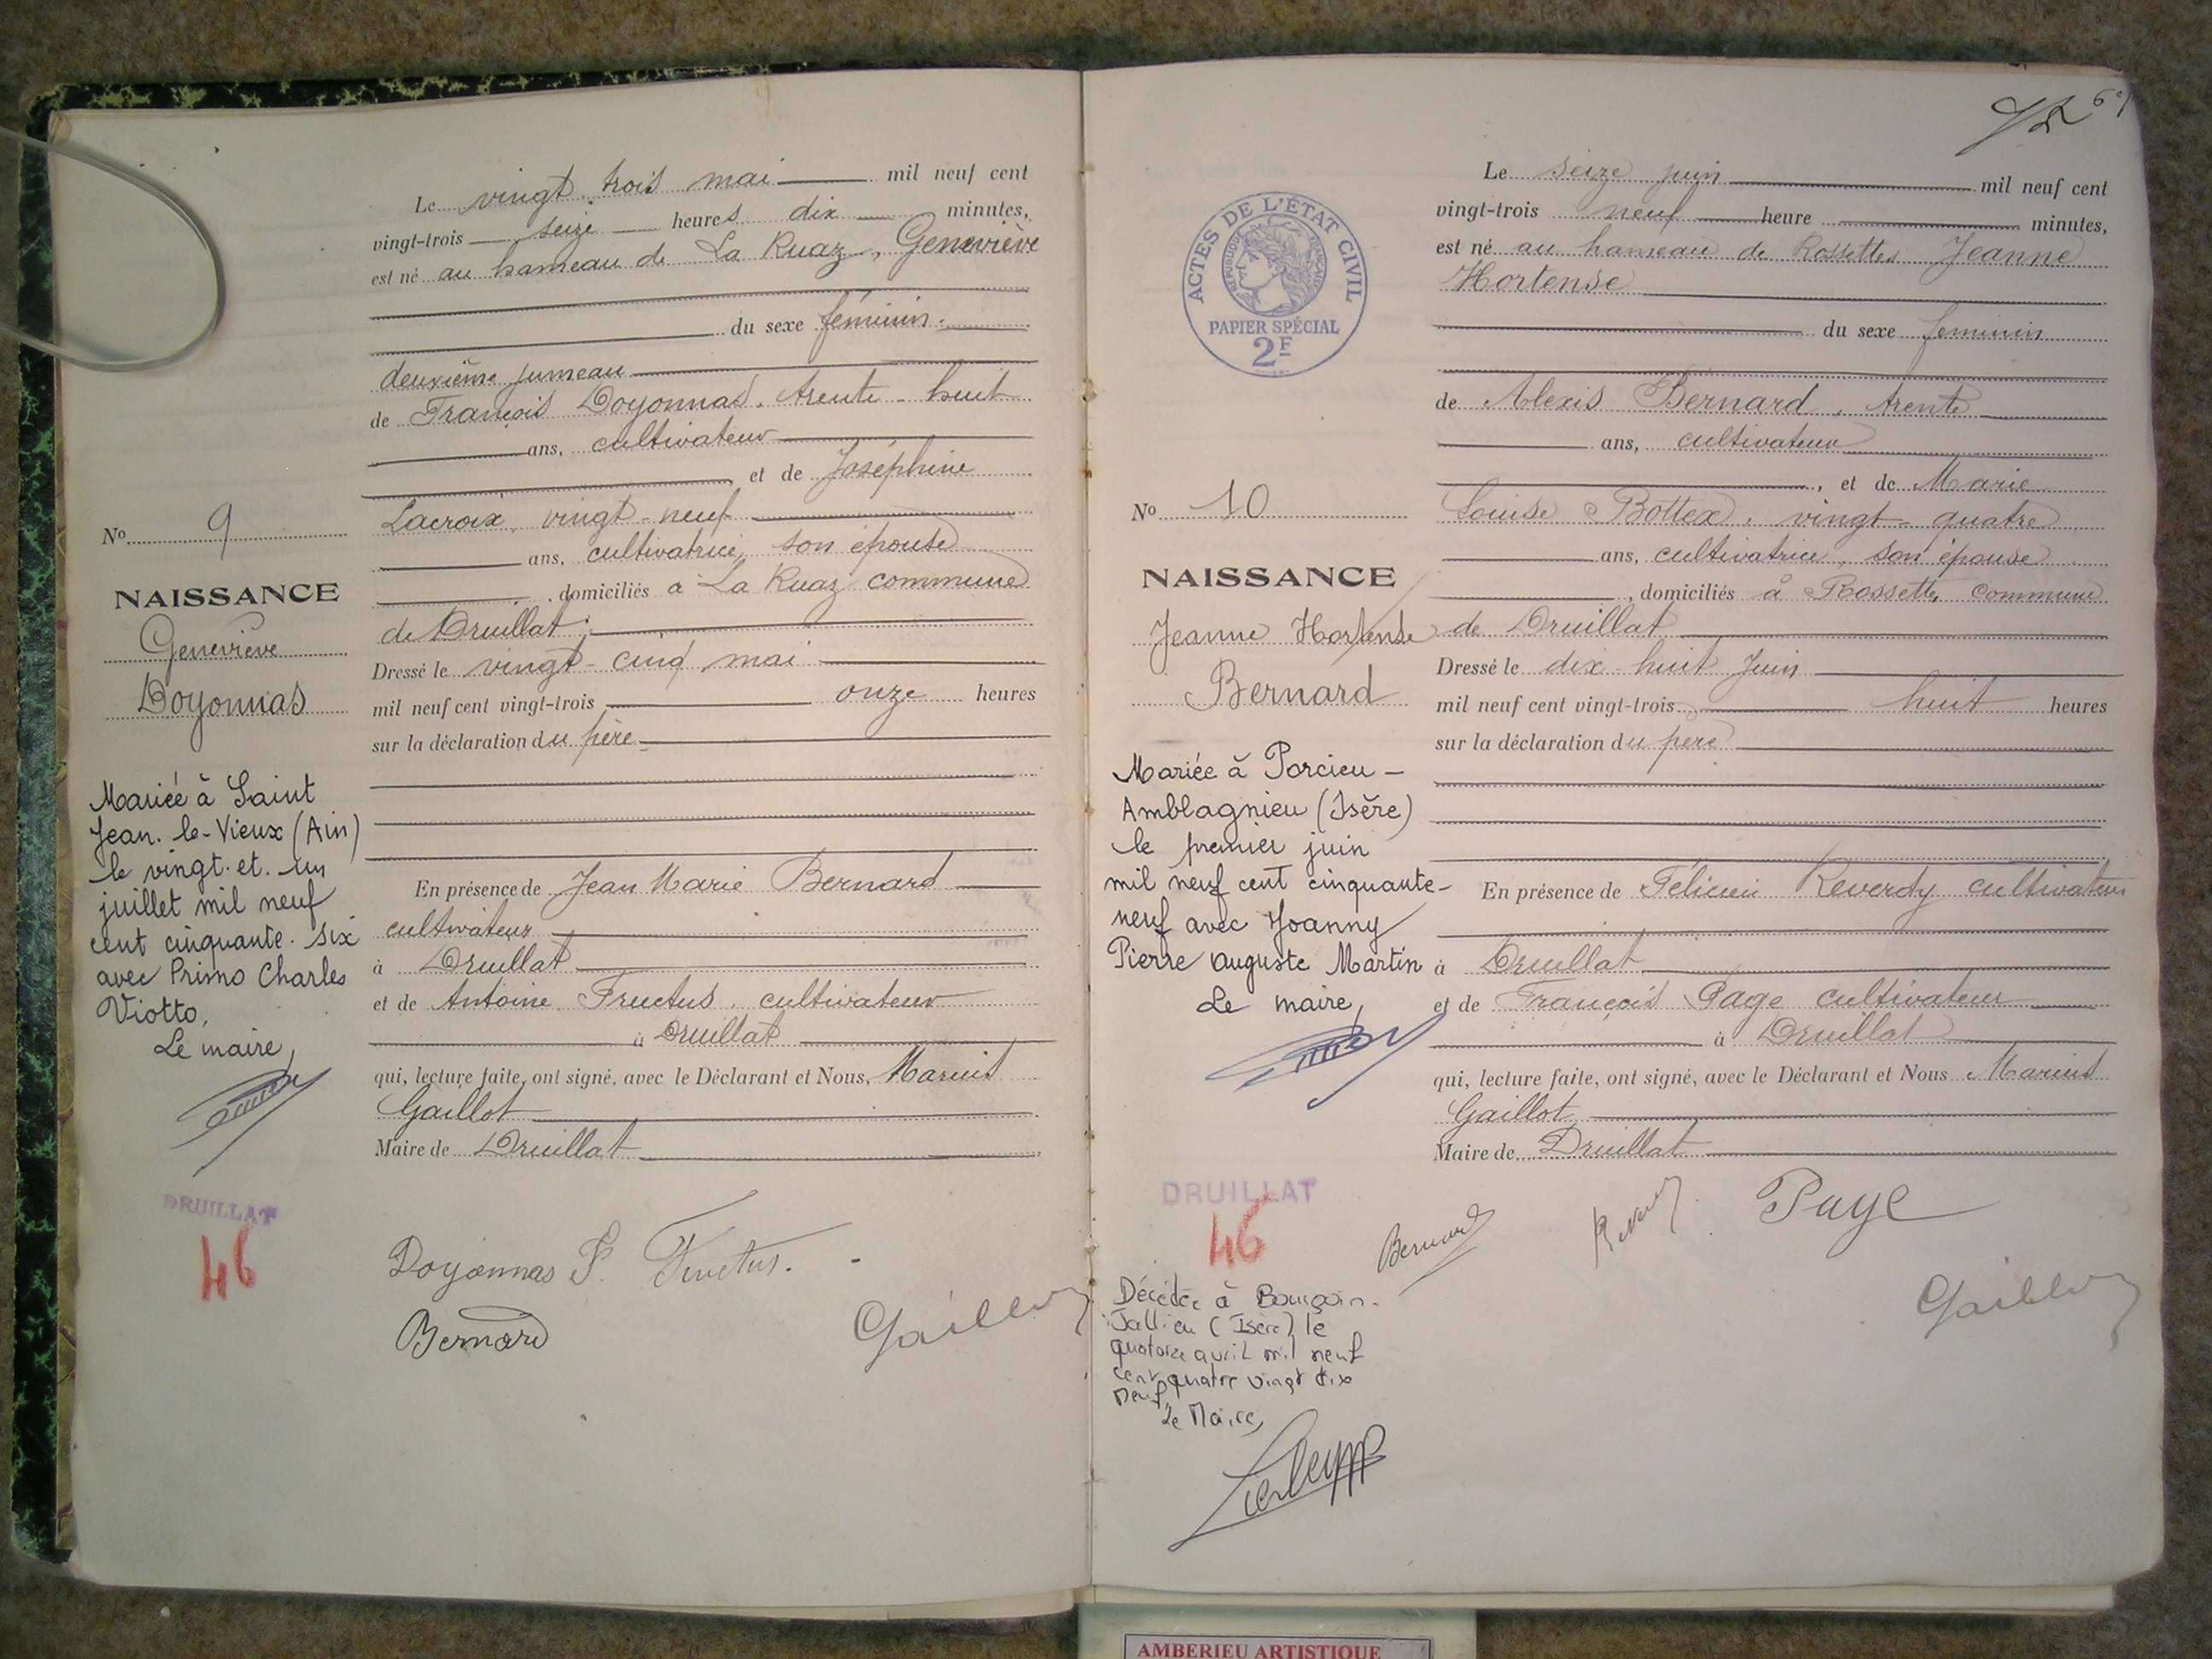 Le vingt trois mai mil neuf cent
vingt-trois seize heures dix minutes,
est né au hameau de La Ruaz, Geneviève
du sexe féminin.
deuxième jumeau
de François Doyonnas, trente-huit
ans, cultivateur
, et de Joséphine
Lacroix, vingt-neuf
ans, cultivatrice, son épouse
, domiciliés à La Ruaz commune
de Druillat;
Dressé le vingt-cinq mai
mil neuf cent vingt-trois onze heures
sur la déclaration du père
En présence de Jean Marie Bernard
cultivateur
à Druillat
et de Antoine Fructus, cultivateur
à Druillat
qui, lecture faite, ont signé, avec le Déclarant et Nous, Marius
Gaillot
Maire de Druillat
No 9
NAISSANCE
Geneviève
Doyonnas
Mariée à Saint
Jean-le-Vieux (Ain)
le vingt-et-un
juillet mil neuf
cent cinquante-six
avec Primo Charles
Viotto,
Le maire,
DRUILLAT
46
Doyonnas F. Fructus.
Bernard
Le seize juin mil neuf cent
vingt-trois neuf heure minutes,
est né au hameau de Rossettes Jeanne
Hortense
du sexe feminin
de Alexis Bernard, trente
ans, cultivateur
, et de Marie
Louise Bottex, vingt-quatre
ans, cultivatrice, son épouse
, domiciliés à Rossettes commune
de Druillat
Dressé le dix-huit Juin
mil neuf cent vingt-trois huit heures
sur la déclaration du père
En présence de Félicien Reverdy cultivateur
à Druillat
et de François Page cultivateur
à Druillat
qui, lecture faite, ont signé, avec le Déclarant et Nous Marius
Gaillot
Maire de Druillat
ACTES DE L'ÉTAT CIVIL
RÉPUBLIQUE FRANÇAISE
PAPIER SPÉCIAL
2F
No 10
NAISSANCE
Jeanne Hortense
Bernard
Mariée à Porcieu-
Amblagnieu (Isère)
le premier juin
mil neuf cent cinquante-
neuf avec Joanny
Pierre Auguste Martin
Le maire,
DRUILLAT
46
Bernard Page
Décédée à Bourgoin-
Jallieu (Isère) le
quatorze avril mil neuf
cent quatre vingt dix
neuf,
Le Maire,
AMBERIEU ARTISTIQUE